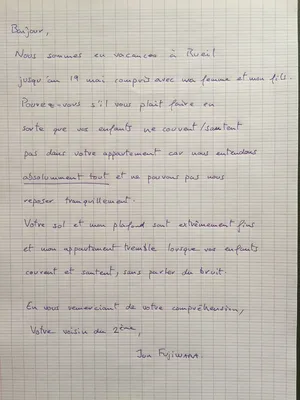 Bonjour,
Nous sommes en vacances à Rueil
jusqu'au 19 mai compris avec ma femme et mon fils.
Pouvez-vous s'il vous plaît faire en
sorte que vos enfants ne courent/sautent
pas dans votre appartement car nous entendons
absolument tout et ne pouvons pas nous
reposer tranquillement.
Votre sol et mon plafond sont extrêmement fins
et mon appartement tremble lorsque vos enfants
courent et sautent, sans parler du bruit.
En vous remerciant de votre compréhension,
Votre voisin du 2ème,
Jun FUJIWARA.